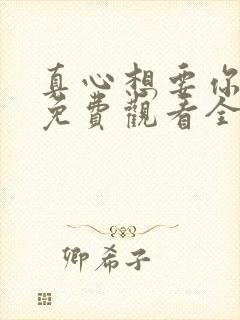 真心想要你
免費觀看全
卿希子